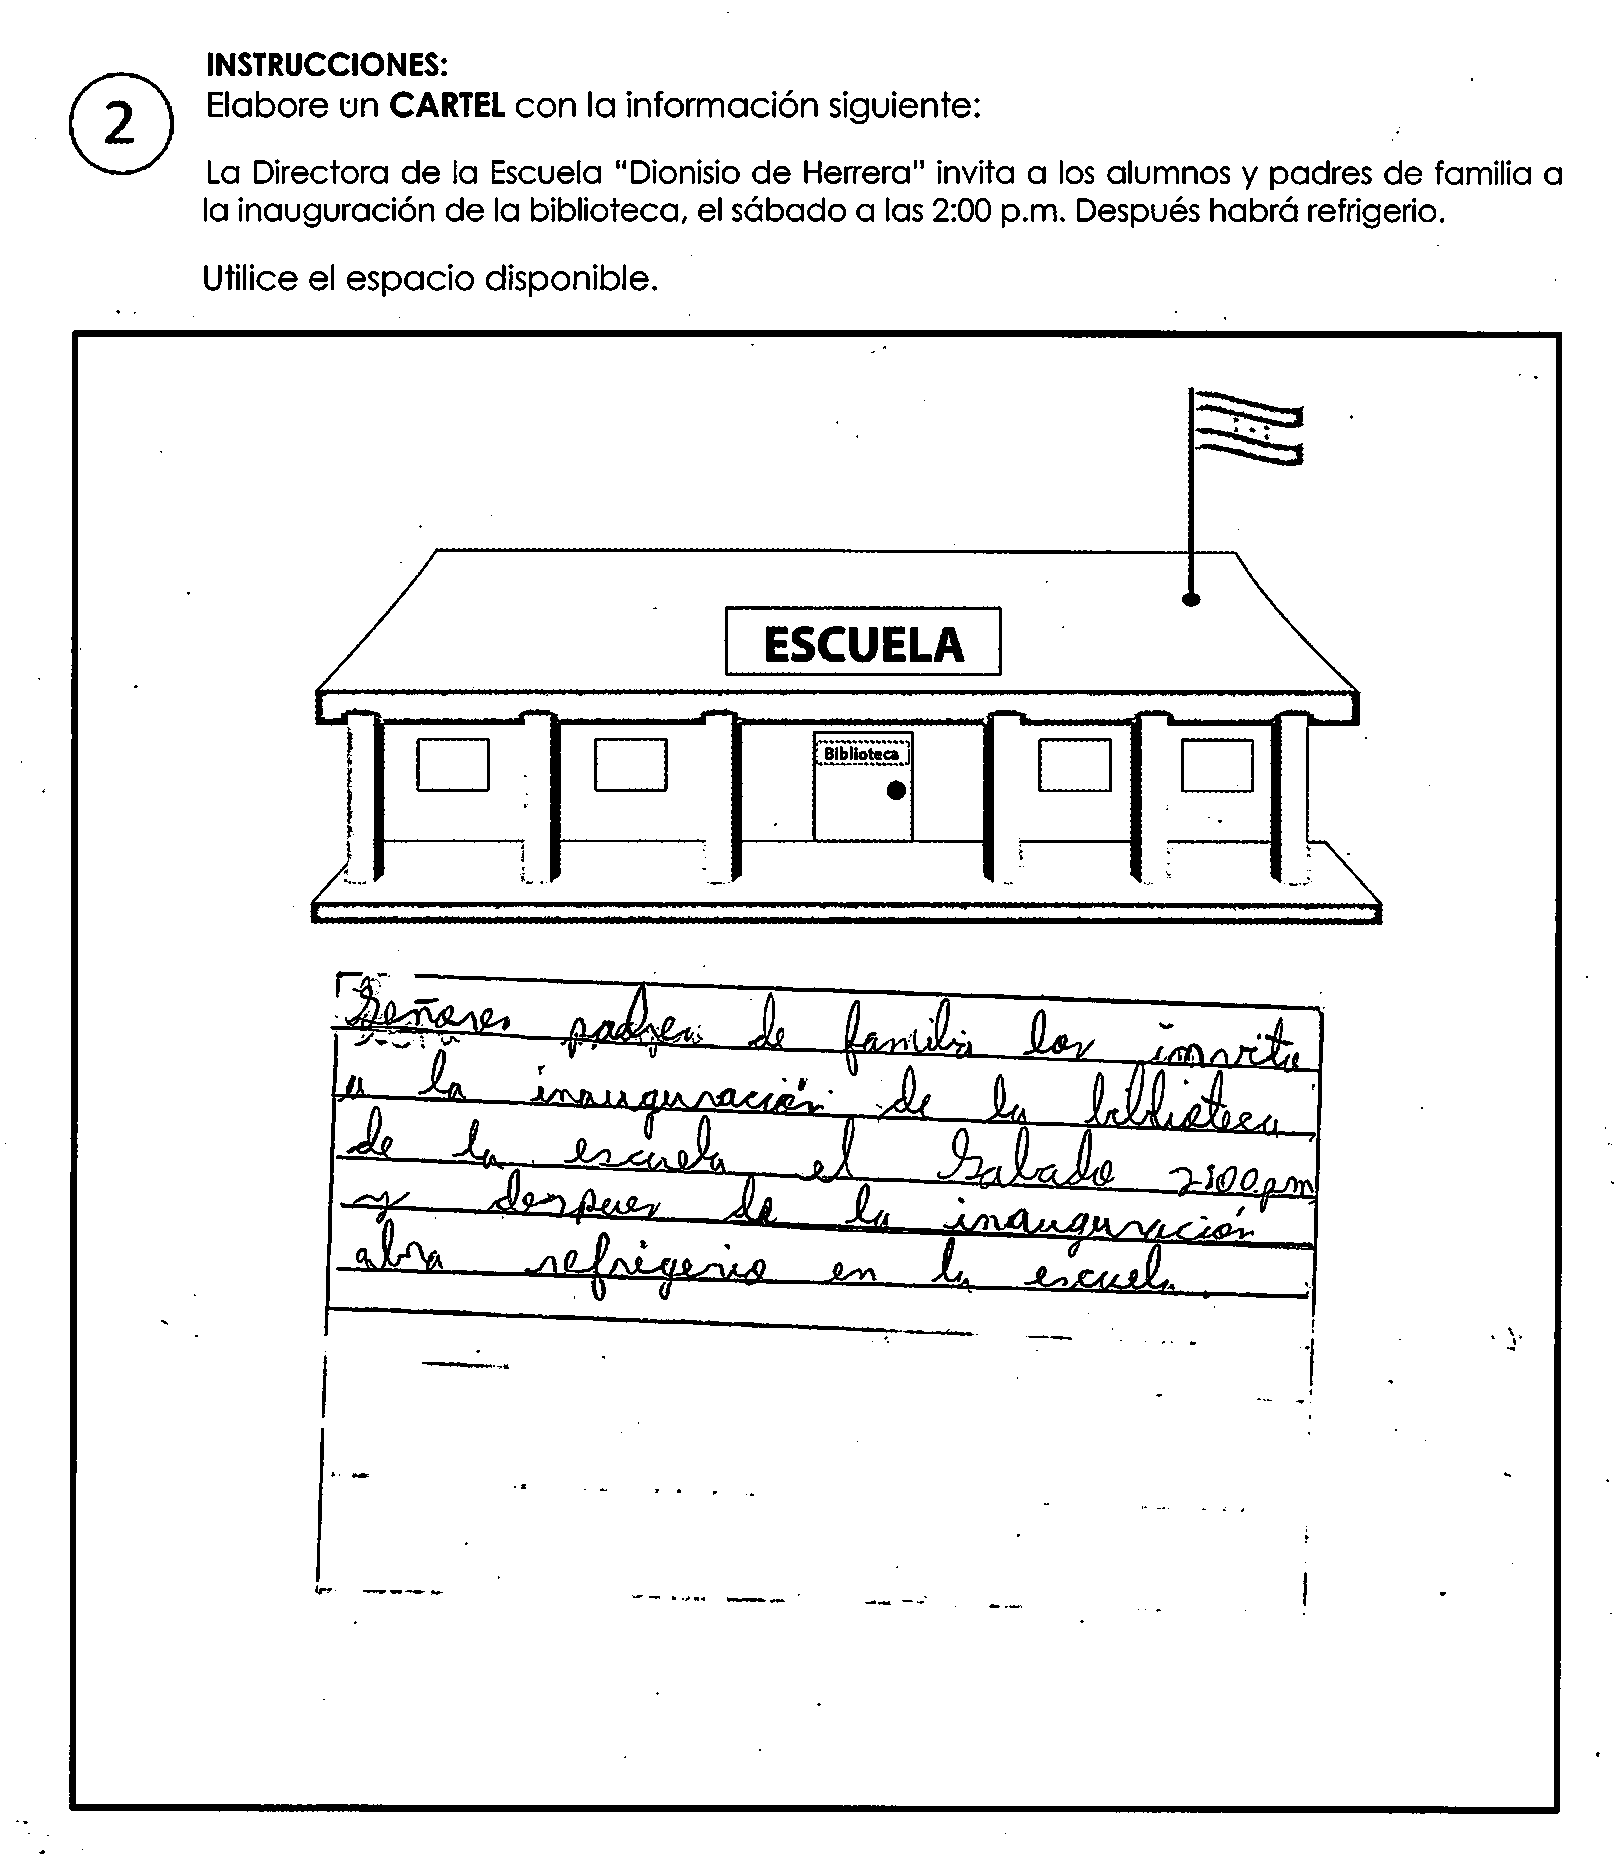 INSTRUCCIONES:
2
Elabore un CARTEL con la información siguiente:
La Directora de la Escuela "Dionisio de Herrera" invita a los alumnos y padres de familia a
la inauguración de la biblioteca, el sábado a las 2:00 p.m. Después habrá refrigerio.
Utilice el espacio disponible.
ESCUELA
Biblioteca
Señores padres de familia los imvita
a la inauguración de la biblioteca
de la escuela el Sabado 2:00.pm
y despues de la inauguración
abra refrigerio en la escuela